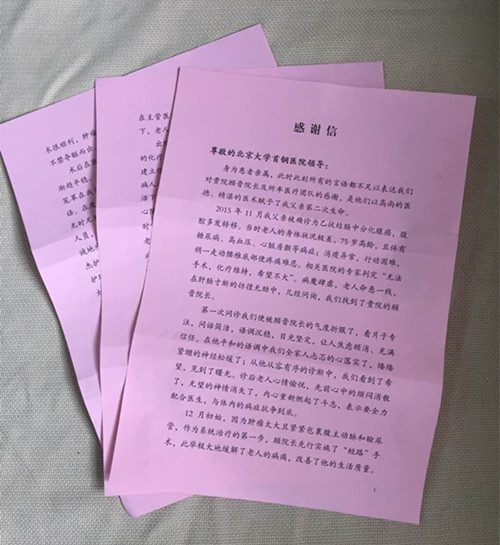 感谢信
尊敬的北京大学首钢医院领导：
身为患者亲属，此时此刻所有的言语都不足以表达我们
对贵院顾晋院长及所率医疗团队的感谢，是他们以高尚的医
德、精湛的医术赋予了我父亲第二次生命。
2015 年 11 月我父亲被确诊为乙状结肠中分化腺癌，腹
腔多发转移。当时老人的身体状况极差，75 岁高龄，且伴有
糖尿病、高血压、心脏房颤等病症；消瘦异常，行动困难，
稍一走动腰椎底部便疼痛难忍。相关医院的专家判定“无法
手术，化疗维持，希望不大”。病魔肆虐，老人命悬一线，
在肝肠寸断的彷徨无助中，几经问询，我们找到了贵院的顾
晋院长。
第一次问诊我们便被顾晋院长的气度折服了，看片子专
注，问话简洁，语调沉稳，目光坚定，让人焦虑顿消、充满
信任。在他平和的语调中我们全家人忐忑的心落实了，绻绻
紧绷的神经松缓了；从他从容有序的诊断中，我们看到了希
望，见到了曙光。诊后老人心情愉悦，先前心中的烦闷消散
了，无望的神情消失了，内心重新燃起了斗志，表示要全力
配合医生，与体内的病症抗争到底。
12 月初始，因为肿瘤太大且紧紧包裹腹主动脉和输尿
管，作为系统治疗的第一步，顾院长先行实施了“短路”手
术，此举极大地缓解了老人的病痛，改善了他的生活质量。
1
在主管医
下，老人
出
的化疗
建立
病人
活
术很顺利，肿瘤
不禁夺眶而出
术后在
渐趋平稳
笔罩在我
语。在
无时无
人员，
诚地